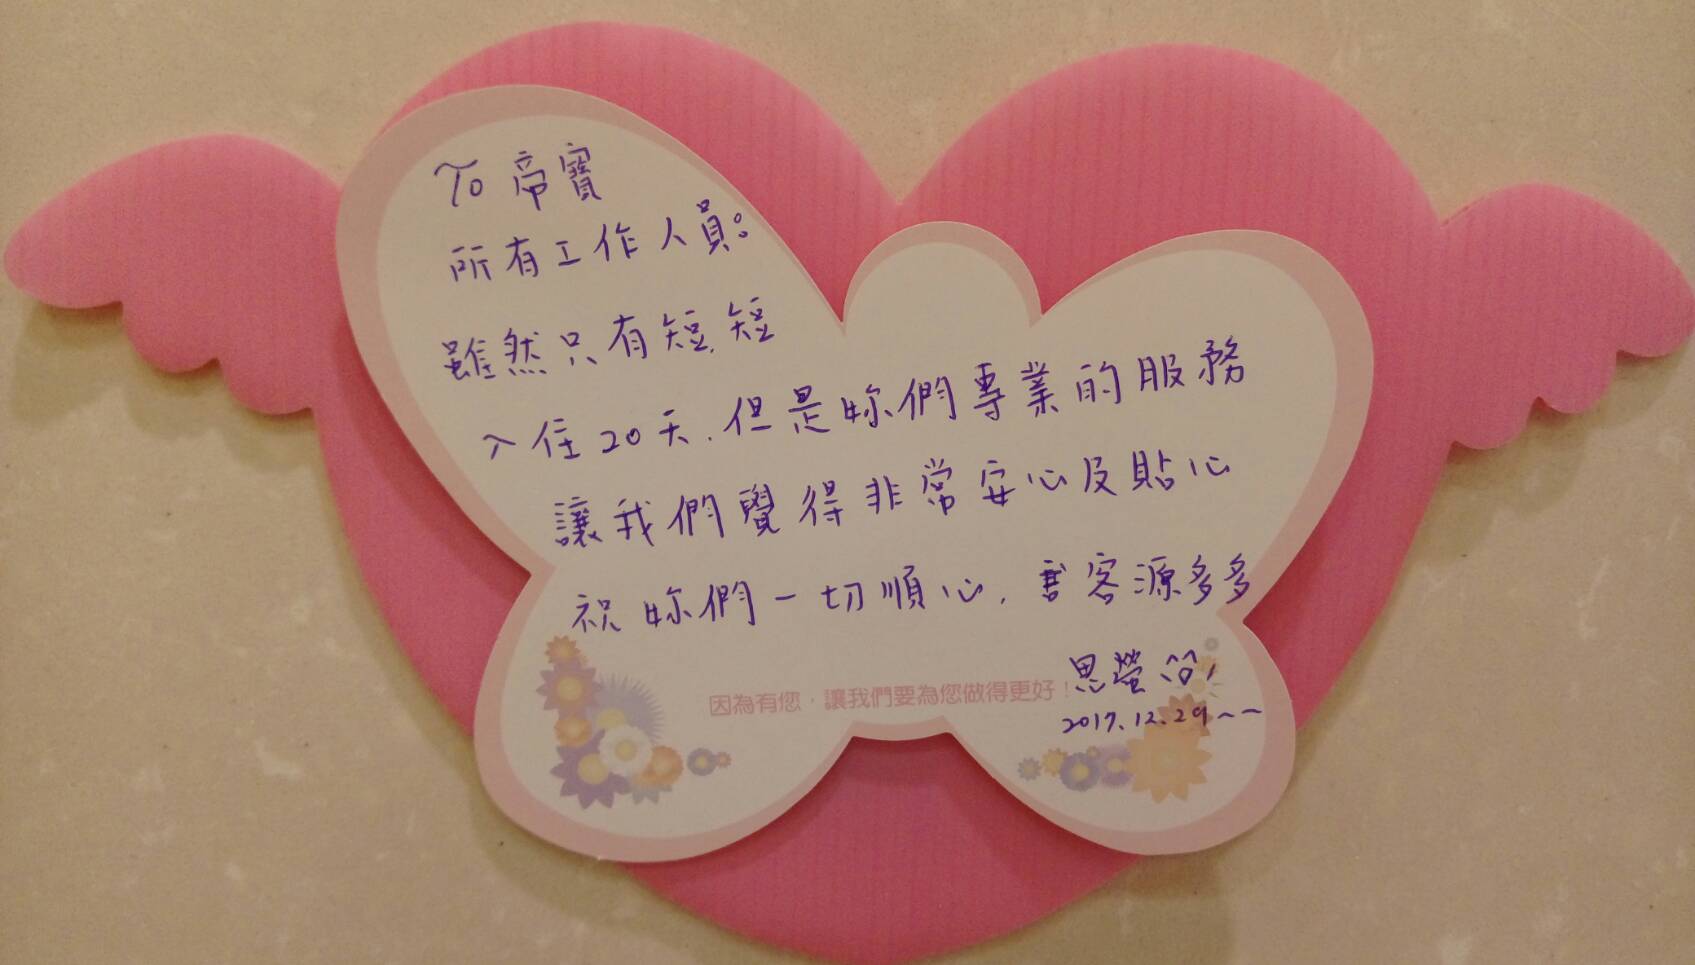 To 帝寶
所有工作人員：
雖然只有短短
入住20天，但是妳們專業的服務
讓我們覺得非常安心及貼心
祝妳們一切順心，客源多多
思螢
2017.12.29~~
因為有您，讓我們要為您做得更好！